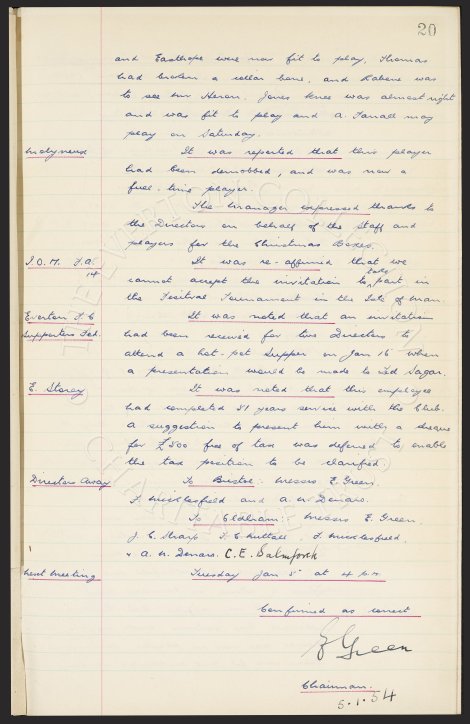 20
and Easthope were now fit to play. Thomas
had broken a collar bone, and Labone was
to see Mr Heron. Jones knee was almost right
and was fit to play and A. Farrall may
play on Saturday.
It was reported that this player
had been demobbed, and was now a
full-time player.
The Manager expressed thanks to
the Directors on behalf of the Staff and
players for the Christmas Boxes.
I.O.M. F.A.
It was re-affirmed that we
cannot accept the invitation to take part in
the Festival Tournament in the Isle of Man.
Everton F.C
It was noted that an invitation
Supporters Fed.
had been received for two Directors to
attend a hot-pot Supper on Jan 16 when
a presentation would be made to Ted Sagar.
E. Storey
It was noted that this employee
had completed 31 years service with the Club.
A suggestion to present him with a cheque
for £300 free of tax was deferred to enable
the tax position to be clarified.
Directors Away
To Bristol: Messrs E. Green
F. Micklesfield and A. W. Denaro.
To Oldham: Messrs E. Green
J. C. Sharp F. C. Nuttall F. Micklesfield.
& A. W. Denaro. C. E. Balmforth
Next Meeting
Tuesday Jan 5 at 4 p.m.
Confirmed as correct
E Green
Chairman.
5.1.54